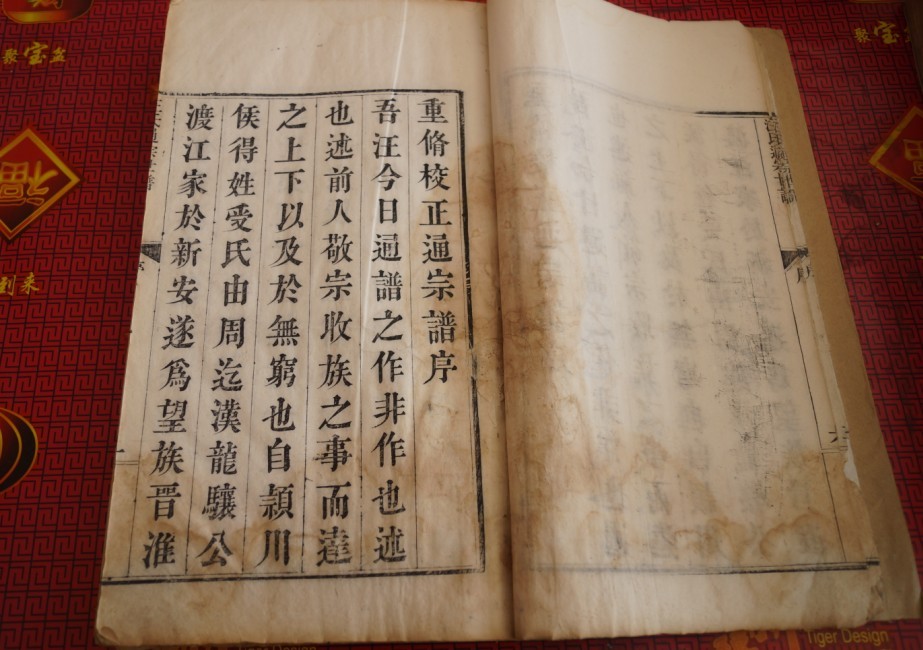 重脩校正通宗譜序
吾汪今日通譜之作非作也述
也述前人敬宗收族之事而達
之上下以及於無窮也自頴川
侯得姓受氏由周迄漢龍驤公
渡江家於新安遂爲望族晉淮
汪氏通宗世譜
序
六
聚宝盆
聚宝
福
到来
Tiger Design